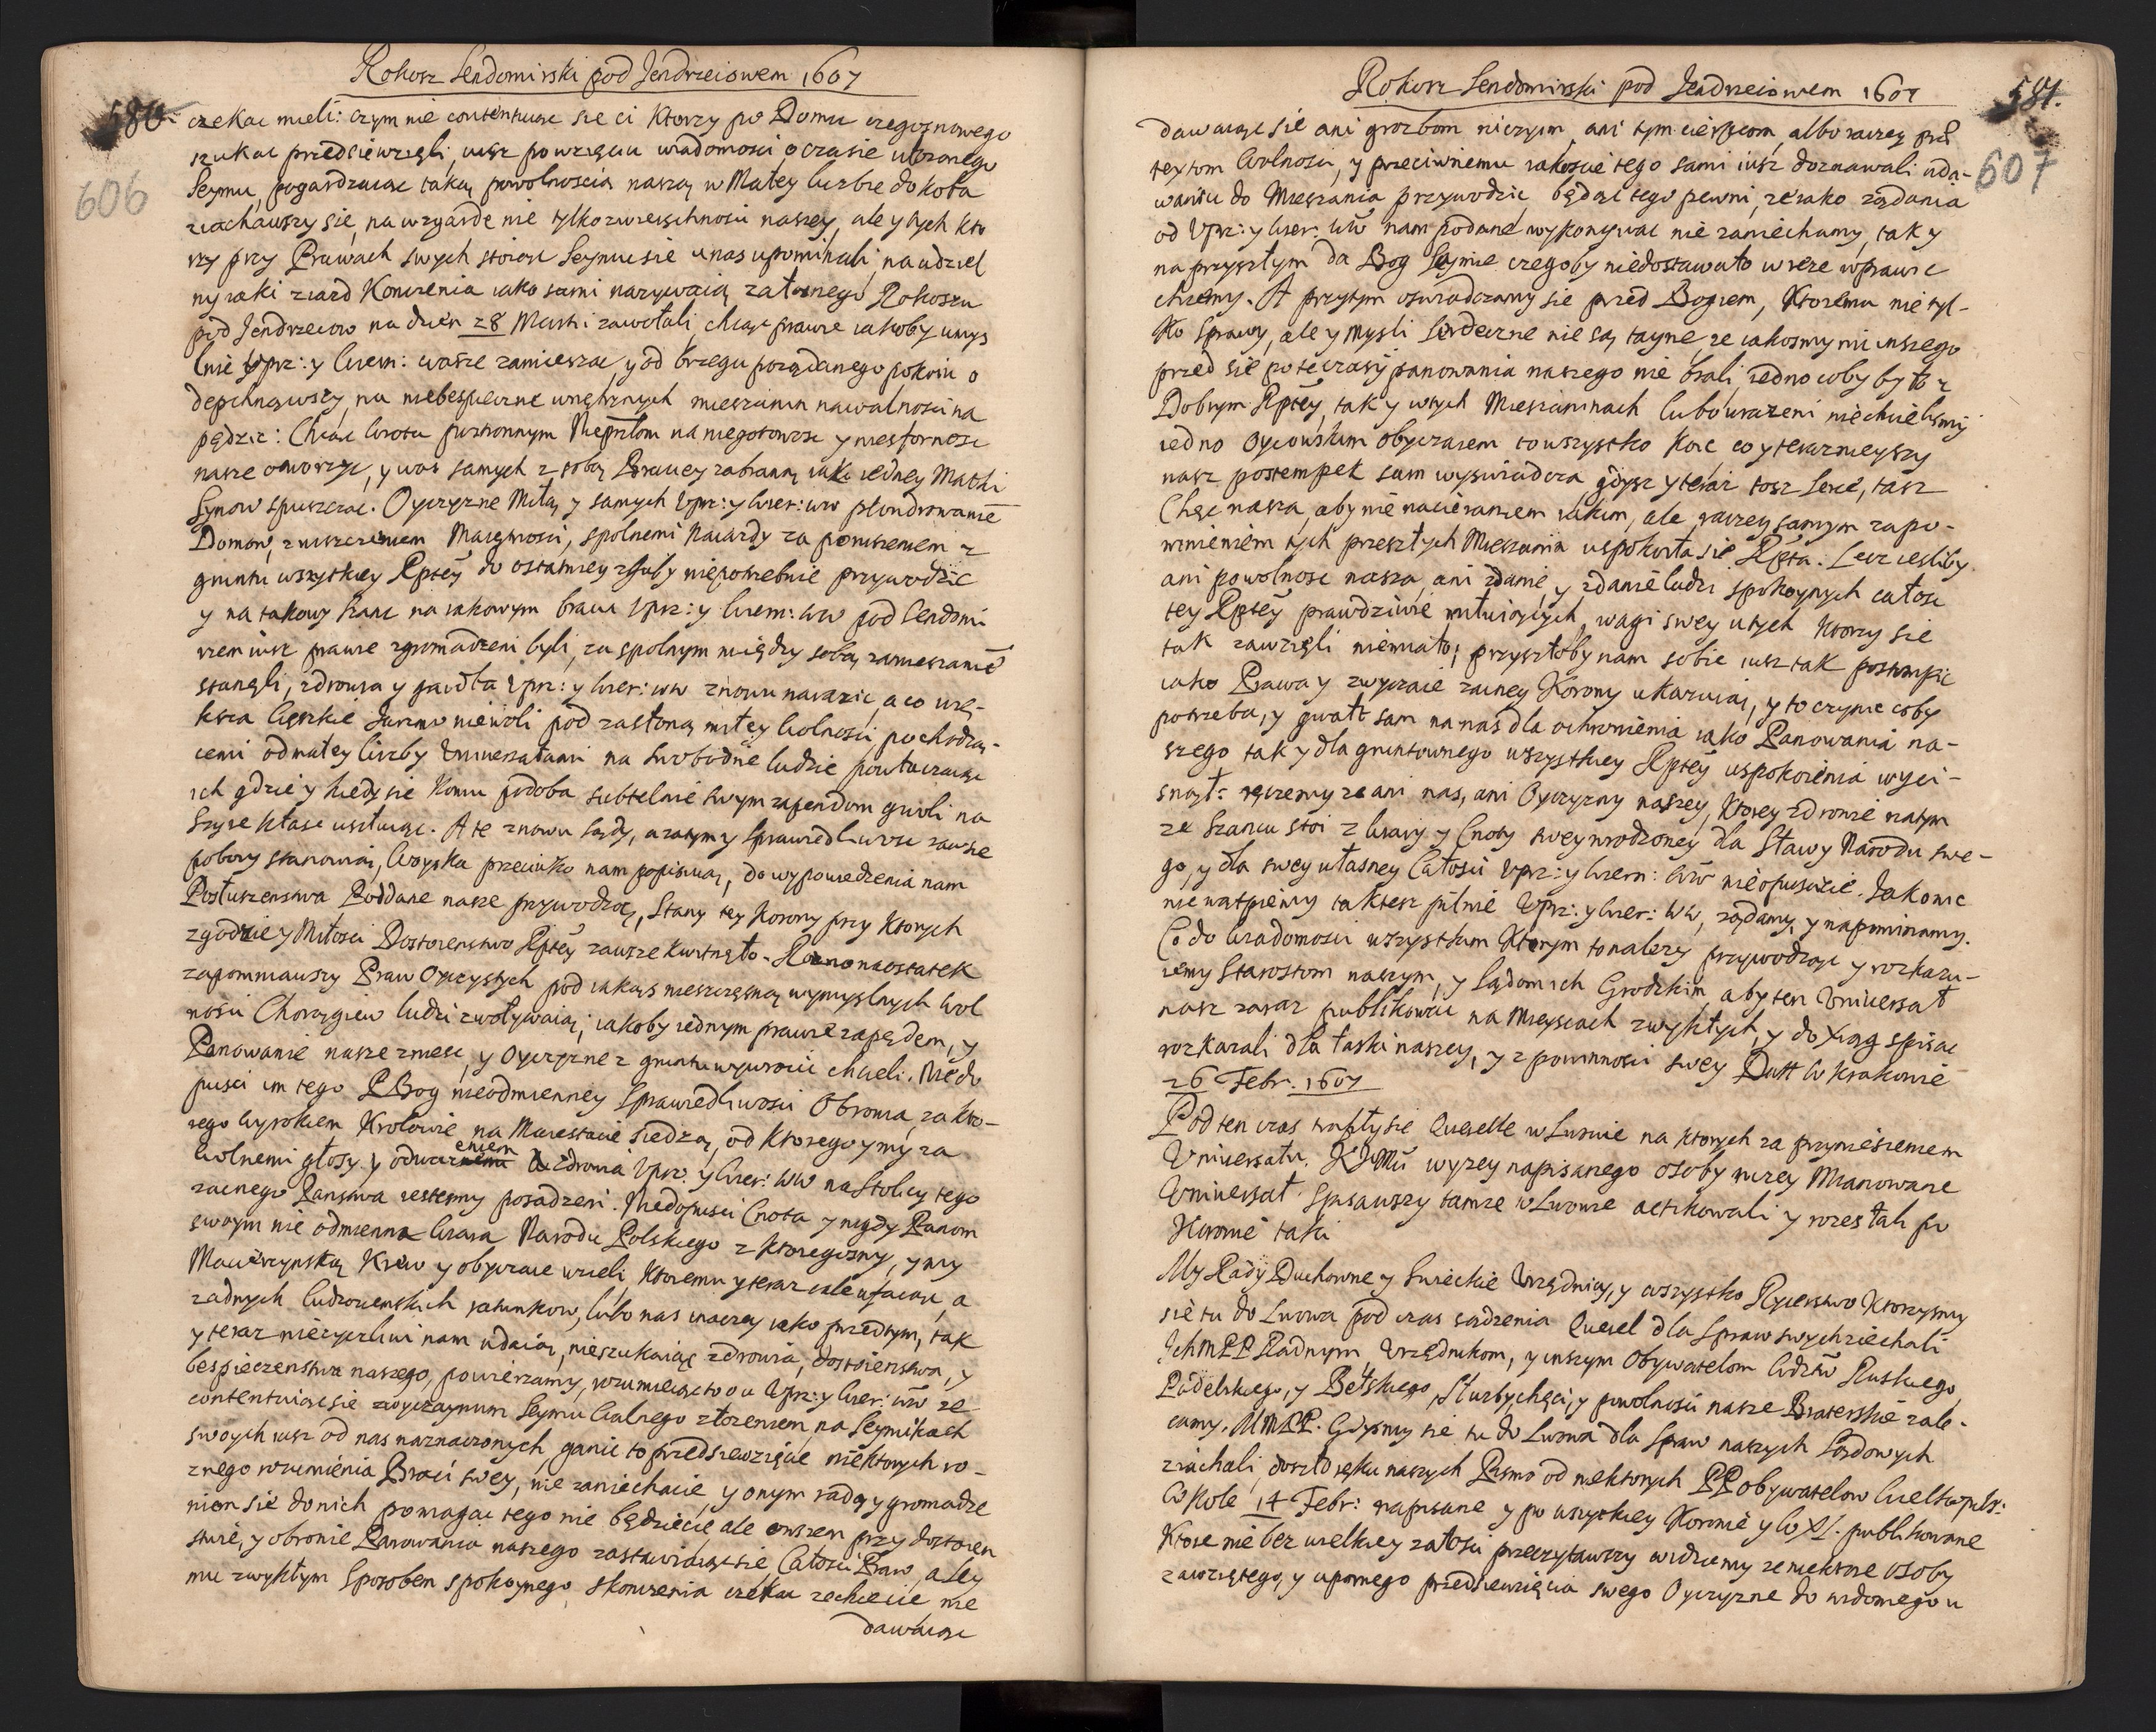 Rokosz Sendomirski pod Jendrzeiowem 1607
580.
606
czekac mieli: czym nie contentuiac sie ci ktorzy po Domu czegoznowego
szukac przedsiewzieli, iusz powzięciu wiadomosci o czasie ułozonego
Seymu, pogardzaiac taką powolnoscią naszą w Małey liczbie do koła
ziachawszy sie, na wzgarde nie tylko zwierzchnosci naszey, ale y tych kto
rzy przy Prawach swych stoiąc Seymu sie u nas upominali, na udziel
ny iaki ziazd Konczenia iako sami nazywaią załosnego Rokoszu
pod Jendrzeiow na dzien 28 Martii zawołali, chcąc prawie iakoby umys
lnie Vprz: y Wiern: wasze zamieszac, y od brzegu pożądanego pokoiu o
depchnąwszy, na niebespieczne wnętrznych mieszanin nawalnosci na
pędzic: Chcąc wrota postronnym Nieprzłom na niegotowosc y niesfornosc
nasze otworzyc, y was samych z sobą Bracey zabranną iako iedney Matki
Synow spuszczac. Oyczyzne Miłą y samych Vprz: y Wier: ww plondrowanie
Domow, zniszczeniem Maiętnosci, spolnemi Naiazdy za poruszeniem z
gruntu wszystkiey Rptey do ostatniey zguby niepotrzebnie przywodzic
y na takowy szanc na iakowym bracia Vprz: y Wiern: ww pod Sendomi
rzem iusz prawie zgromadzeni byli, za spolnym między sobą zamieszanie
stanęli, zdrowia y gardła Vprz: y Wier: ww znowu narazic, a co wię-
ksza Cięszkie Jarzmo niewoli pod zasłoną miłey Wolnosci pochodzą-
cemi od małey liczby Uniwersałami na swobodne ludzie powtaczaiąc
ich gdzie y kiedy sie komu podoba subtelnie swym zapendom gwoli na
szyie kłasc usiłuiąc. A te znowu Sądy, a zatym y Sprawiedliwosc zawsze
pobory stanowią, Woyska przeciwko nam popisuią, do wypowiedzenia nam
Posłuszenstwa Poddane nasze przywodzą, Stany tey Korony przy ktorych
zgodzie y Miłosci Dostoienstwo Rptey zawsze kwitnęło. Rozno naostatek
zapomniawszy Praw Oyczystych pod iakąs nieszczęsną wymyslnych Wol
nosci Chorągiew ludzi zwoływaią; iakoby iednym prawie zapędem, y
Panowanie nasze zniesc, y Oyczyzne z gruntu wywrocic chcieli. Niedo
pusci im tego P Bog nieodmienney Sprawiedliwosci Obronca, za kto-
rego wyrokiem Krolowie na Maiestacie siedzą, od ktorego y my za
Wolnemi głosy y odwazeniem zdrowia Vprz: y Wier: WW na Stolicy tego
zacnego Panstwa iestesmy posadzeni. Niedopusci Cnota y nigdy Panom
swoym nie odmienna Wiara Narodu Polskiego z ktoregosmy, y my
Macierzynską Krew y obyczaie wzieli, ktoremu y teraz cale ufaiąc, a
zadnych Cudzoziemskich ratunkow, lubo nas inaczey iako przedtym, tak
y teraz nieżyczliwi nam udaią, nieszukaiąc zdrowia, dostoienstwa, y
bespieczenstwa naszego, powierzamy, rozumieiąc to o Vprz: y Wier: ww ze
contentuiąc sie zwyczaynym Seymu Walnego złozeniem na Seymikach
swoych iusz od nas naznaczonych, ganic to przedsiewzięcie niektorych ro-
znego rozumienia Braci swey, nie zaniechacie, y onym radą y gromadze
niem sie do nich pomagac tego nie będziecie, ale owszem przy dostoien
stwie, y obronie Panowania naszego zastawiaiąc sie, Całosci Praw, a Sey
mu zwykłym Sposobem spokoynego skonczenia czekac zechcecie, nie
dawaiąc
Rokosz Sendomirski pod Jendrzeiowem 1607
581.
607
dawaiąc sie ani grozbom niczyim, ani tym cięszcom, albo raczey prae
textom Wolnosci, y przeciwnemu iakoscie tego sami iusz doznawali uda-
waniu do Mieszania przywodzic będąc tego pewni, ze iako ządania
od Vprz: y Wier: WW nam podane wykonywac nie zaniechamy, tak y
na przyszłym da Bog Seymie czegoby niedostawało w rzecz wprawic
chcemy. A przytym oswiadczamy sie przed Bogiem, ktoremu nie tyl-
ko sprawy, ale y mysli serdeczne nie są tayne, ze iakosmy nic inszego
przed sie po te czasy panowania naszego nie brali, iedno coby było z
Dobrym Rptey, tak y w tych Mieszaninach lubo urazeni nie chcielismy
iedno Oycowskim obyczaiem to wszystko koic co y terazneyszy
nasz postempek sam wyswiadcza, gdysz y teraz tosz serce, tasz
Chęc nasza, aby nie nacieraniem iakim, ale raczey samym zapo-
mnieniem tych przeszłych Mieszania uspokoiła sie Rpta. Lecz iesliby
ani powolnosc nasza, ani zdanie, y zdanie ludzi spokoynych całosc
tey Rptey prawdziwie miłuiących, wagi swey u tych ktorzy sie
tak zawzięli niemiało; przyszłoby nam sobie iusz tak postąpic
iako Prawa y zwyczaie zacney Korony ukazuią, y to czynic coby
potrzeba, y gwałt sam na nas dla ochronienia iako Panowania na-
szego tak y dla gruntownego wszystkiey Rptey uspokoienia wyci-
snął: ręczemy ze ani nas, ani Oyczyzny naszey, ktorey zdrowie natym
ze szancu stoi z Wiary y Cnoty swey wrodzoney dla Sławy Narodu swe-
go, y dla swey własney Całosci Vprz: y Wiern: WW nieopuscicie. Jakosz
nie wątpiemy takżesz pilnie Vprz: y Wier: WW, ządamy, y napominamy.
Co do Wiadomosci wszystkim ktorym to nalezy przywodząc y rozkazu-
iemy Starostom naszym, y Sądom ich Grodzkim, aby ten Uniwersał
nasz zaraz publikowac na Mieyscach zwykłych, y do Xiąg spisac
rozkazali dla łaski naszey, y z powinnosci swey Datt W Krakowie
26 Febr. 1607
Pod ten czas trafiły sie Querelle w Lwowie na ktorych za przyniesieniem
Uniwersału KJMci wyzey napisanego osoby nizey Mianowane
Uniwersał spisawszy tamze w Lwowie actikowali y rozesłali po
Koronie taki
My Rady Duchowne y Swieckie Urzędnicy, y wszystko Rycerstwo ktorzysmy
sie tu do Lwowa pod czas sadzenia Querel dla Spraw swych ziechali
Ichm PP Radnym, Urzędnikom, y inszym Obywatelom Wdztw Ruskiego,
Podolskiego, y Bełskiego, Słuzby chęci, y powolnosci nasze Braterskie zale-
camy. MMPP. Gdysmy sie tu do Lwowa dla Spraw naszych Sądowych
ziachali, doszło ręku naszych Pismo od niektorych PP obywatelow Wielkopols:
W Kole 14 Febr: napisane y po wszytkiey Koronie y W X L. publikowane
Ktore nie bez wielkiey załosci przeczytawszy widziemy ze niektore osoby
zawziętego, y upornego przedsiewzięcia swego Oyczyzne do widomego u